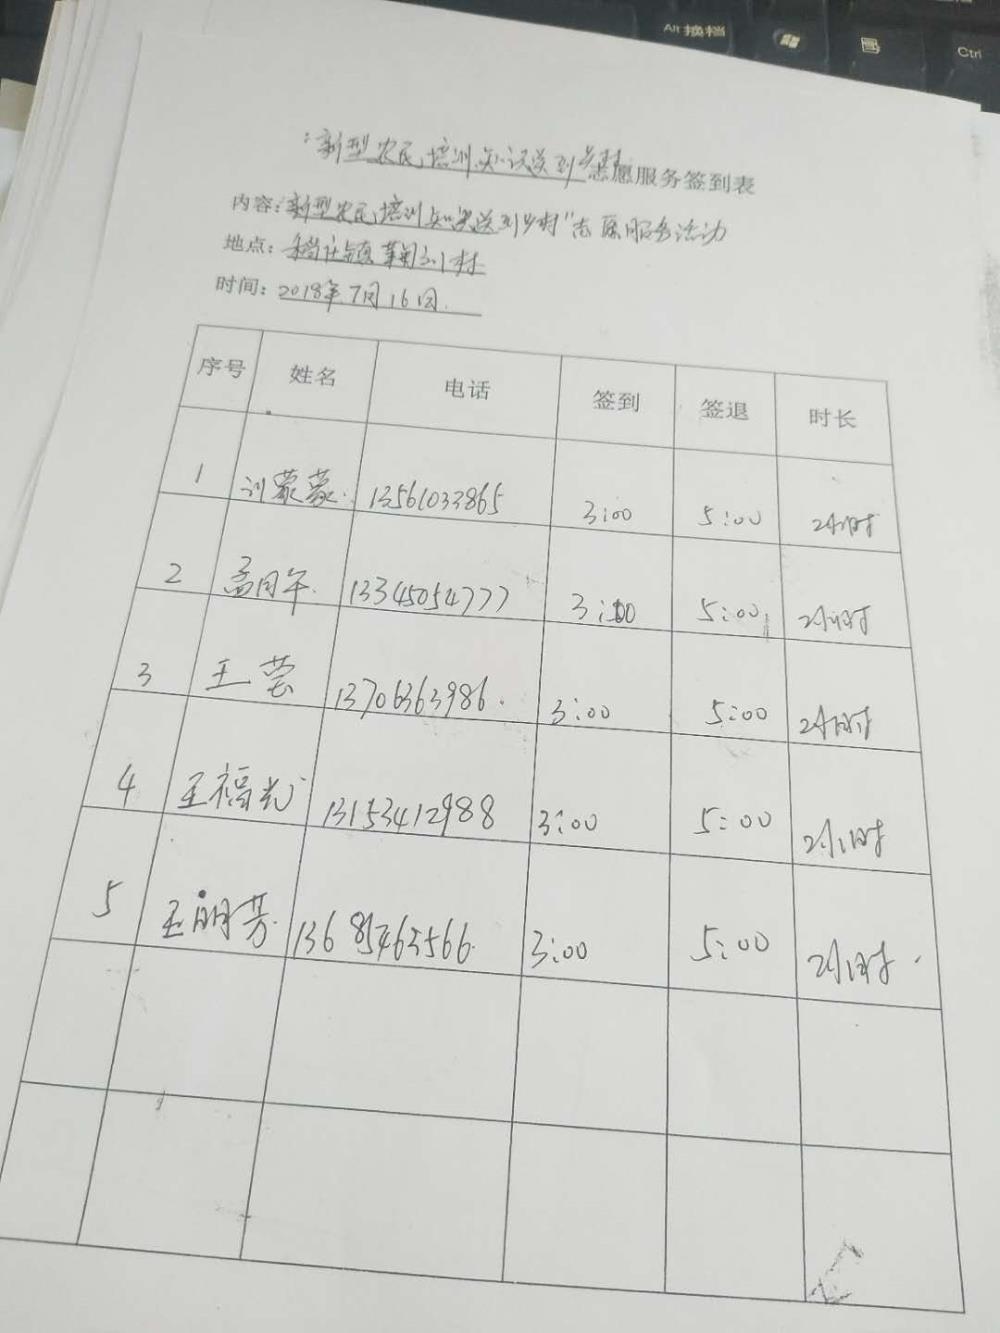 Alt 换档
Ctrl
新型农民培训知识送到乡村志愿服务签到表
内容:新型农民培训知识送到乡村"志愿服务活动
地点:
时间:2018年7月16日
序号 姓名 电话 签到 签退 时长
1 刘蒙蒙 13561033865 3:00 5:00 2小时
2 孟同年 13345054777 3:00 5:00 2小时
3 王芸 13706363986 3:00 5:00 2小时
4 王福光 13153412988 3:00 5:00 2小时
5 王明芳 13685463566 3:00 5:00 2小时